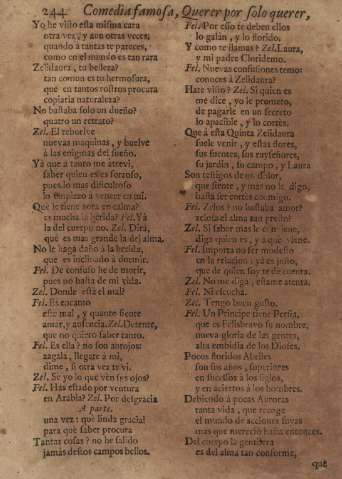 244 Comedia famosa, Querer por solo querer,
Yo he visto esta misma cara
otra vez, y aun otras veces,
quando à tantas te pareces,
como en el mundo es tan rara
Zelidaura, tu belleza?
tan comun es tu hermosura,
que en tantos rostros procura
copiarla naturaleza?
No bastaba solo un dueño?
quatro un retrato?
Zel. El rebuelve
nuevas maquinas, y buelve
à las enigmas del sueño.
Yà que à tanto me atrevi,
saber quien es es forzoso,
pues lo mas dificultoso
lo empiezo à vencer en mi.
Què le tiene en calma?
es mucha la herida? Fel. Yà
la del cuerpo no. Zel. Dirà,
que es mas grande la del alma.
No le haga daño à la herida,
que es inclinado à dormir.
Fel. De confuso he de morir,
pues no basta de mi vida.
Zel. Donde està el mal?
Fel. Es encanto
este mal, y quanto siente
amar, y ausencia. Zel. Detente,
que no quiero saber tanto.
Fel. Es ella? no son antojos?
zagala, llegate à mi,
dime, si otra vez te vi.
Zel. Se yo lo que ven tus ojos?
Fel. Hàs estado por ventura
en Arabia? Zel. Por desgracia
A parte.
una vez: què linda gracia!
para què saber procura
Tantas cosas? no he salido
jamàs destos campos bellos.
Fel. Por esso te deben ellos
lo galàn, y lo florido.
Y como te llamas? Zel. Laura,
y mi padre Cloridemo.
Fel. Nuevas confusiones temo:
conoces à Zelidaura?
Hate visto? Zel. Si quien es
me dice, yo le prometo,
de pagarle en un secreto
lo apacible, y lo cortès.
Que à esta Quinta Zelidaura
suele venir, y estas flores,
sus fuentes, sus ruyseñores,
su jardin, su campo, y Laura
Son testigos de un dolor,
que siente, y mas no le digo,
hasta ser cortès conmigo.
Fel. Zelos? no bastaba amor?
zelos al alma tan presto!
Zel. Si saber mas le conviene,
diga quien es, y à que viene.
Fel. Importa no ser modesto
en la relacion; yà es justo,
que de quien soy te dè cuenta.
Zel. No me diga, estame atenta.
Fel. Ni escucha.
Zel. Tengo buen gusto.
Fel. Un Principe tiene Persia,
que es Felisbravo su nombre,
nueva gloria de las gentes,
alta embidia de los Dioses.
Pocos floridos Abriles
son sus años, superiores
en sucessos à los siglos,
y en aciertos à los hombres.
Debiendo à pocas Auroras
tanta vida, que recoge
el mundo de acciones suyas
mas que mereciò hasta entonces.
Del cuerpo la gentileza
es del alma tan conforme,
que